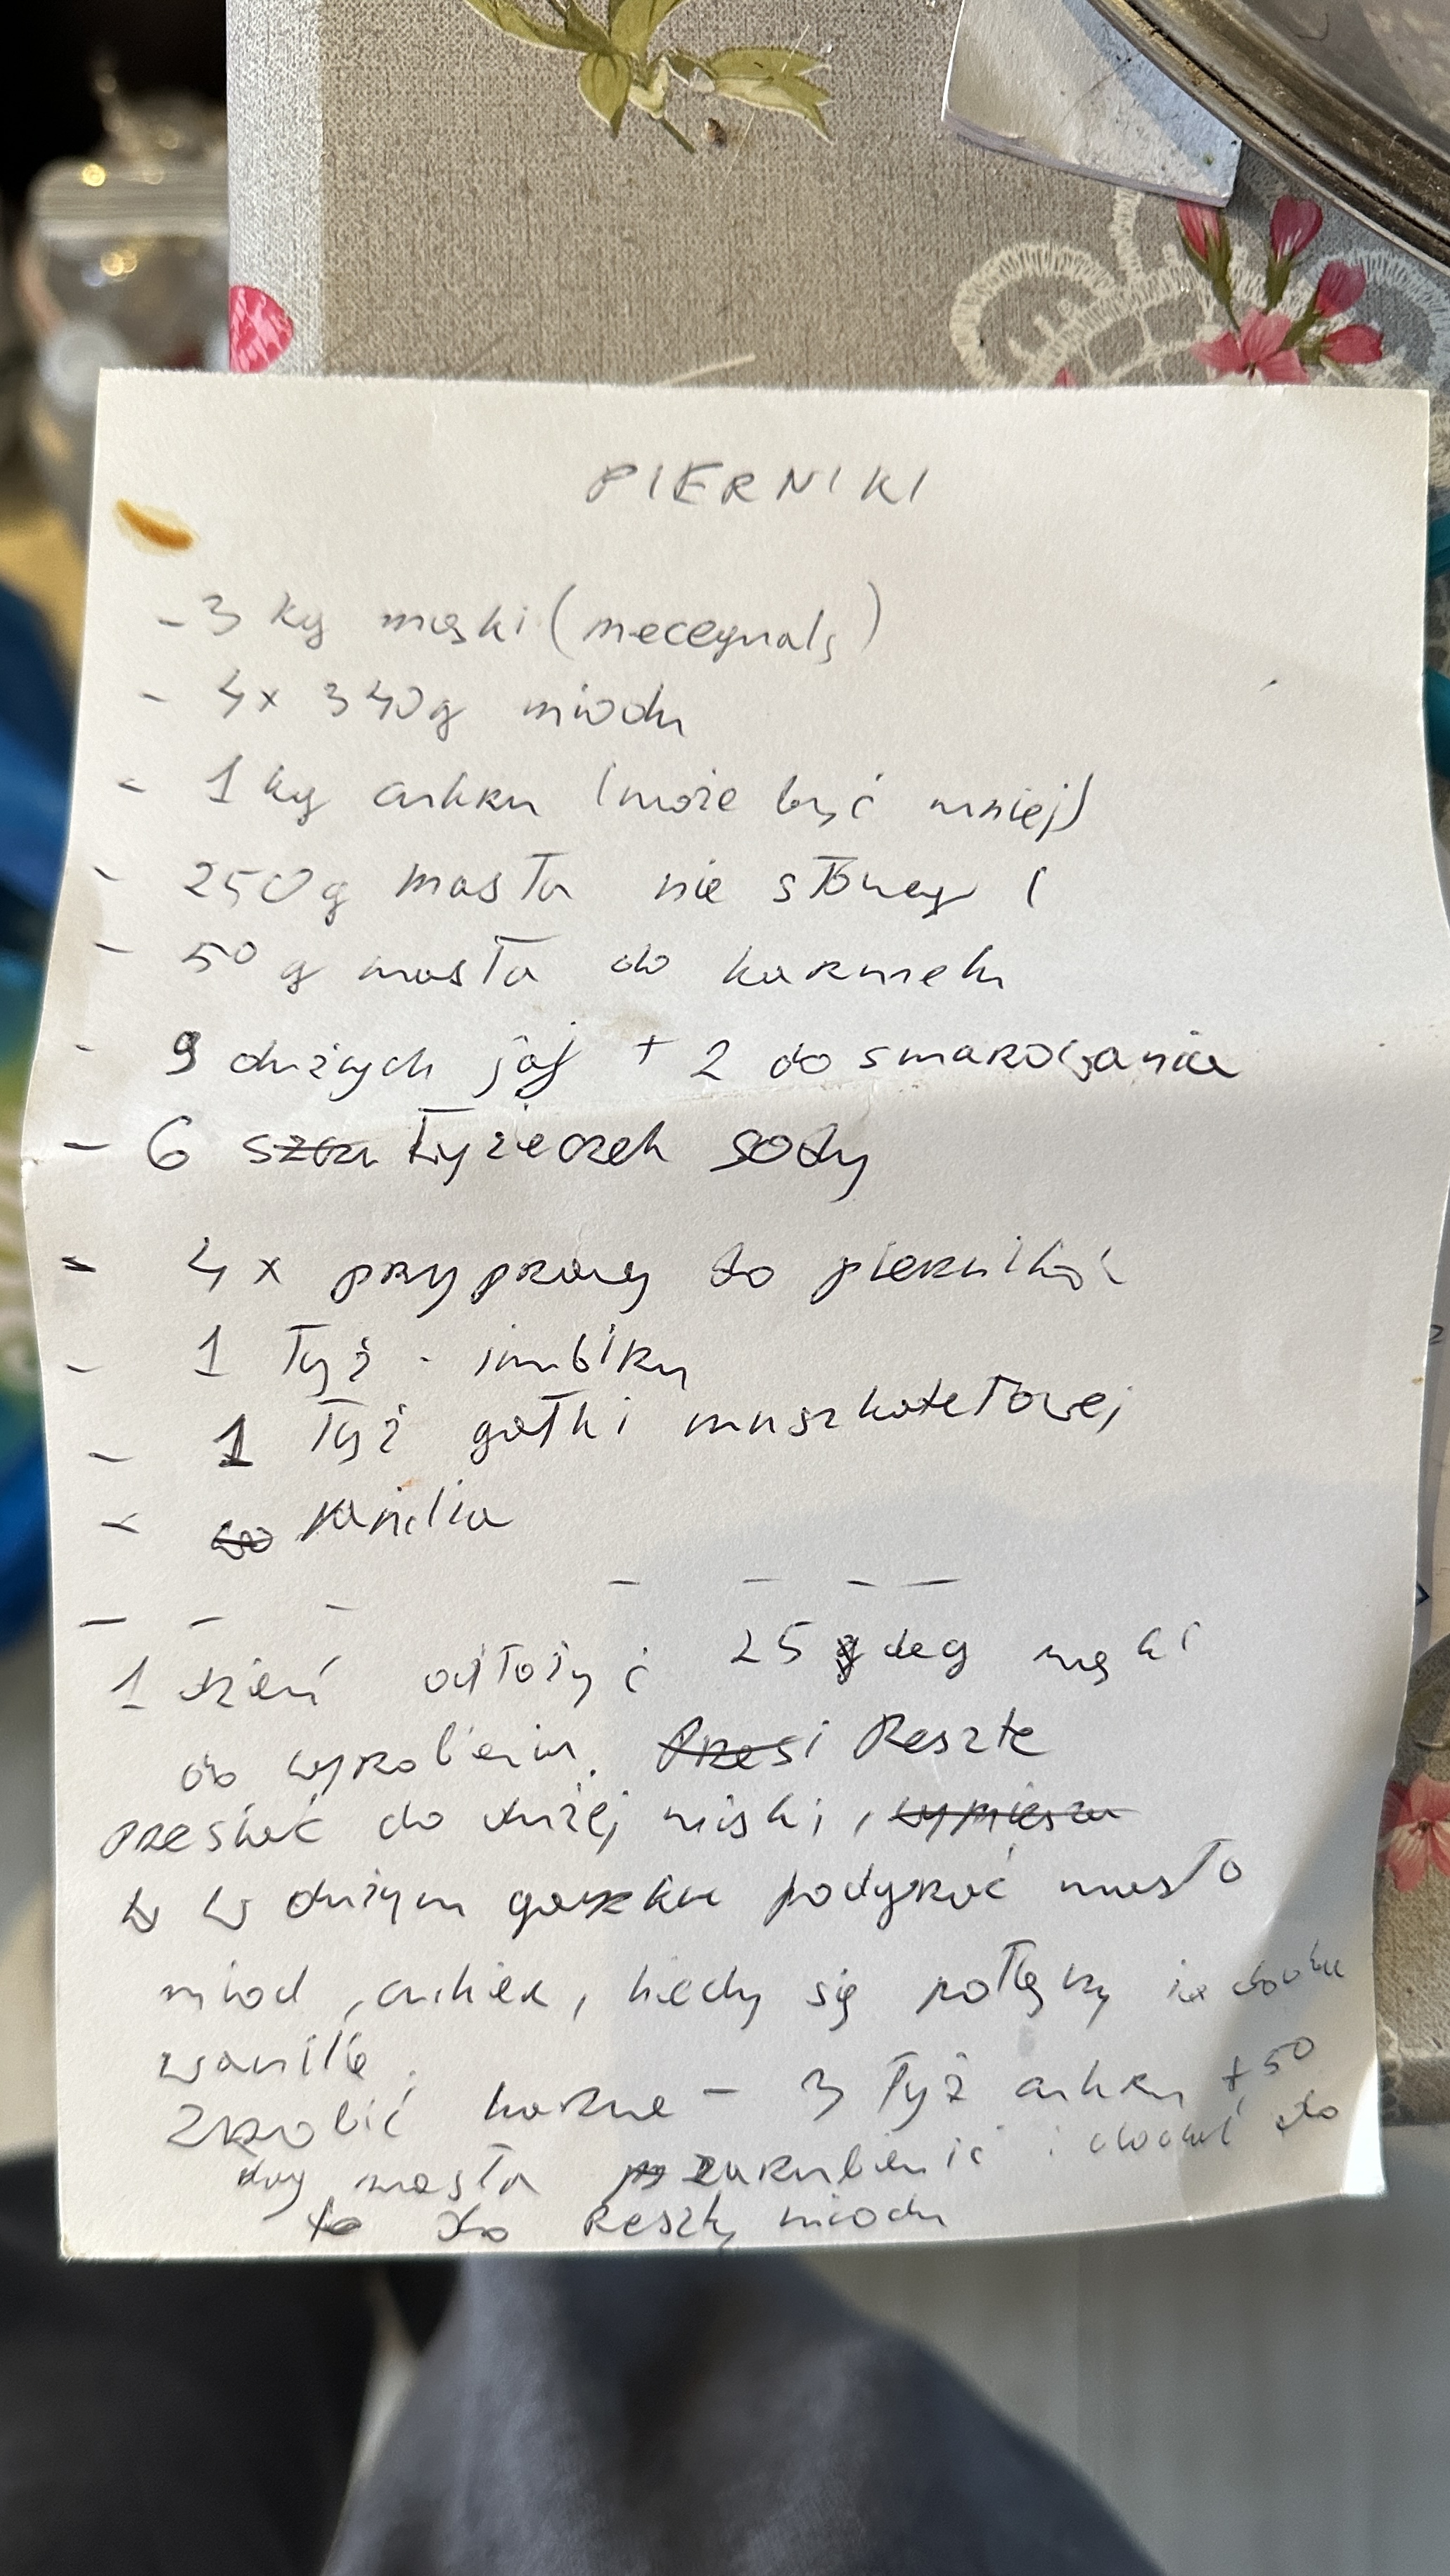 PIERNIKI
- 3 kg mąki (nie całą)
- 4x 340g miodu
- 1 kg cukru (może być mniej)
- 250g masła nie słonego (
- 50 g masła do karmelu
- 9 dużych jaj + 2 do smarowania
- 6 łyżeczek sody
- 4x przyprawy do pierników
- 1 łyż. imbiru
- 1 łyż gałki muszkatełowej
- wanilia
- - - - - - -
1 dzień odłożyć 25 deg mąki
do wyrobienia. Resztę
przesiać do dużej miski,
w dużym garnku podgrzać masło
miód, cukier, kiedy się połączą
wanilię.
Zrobić karme - 3 łyż cukru + 50
masła i dodać do
do reszty miodu